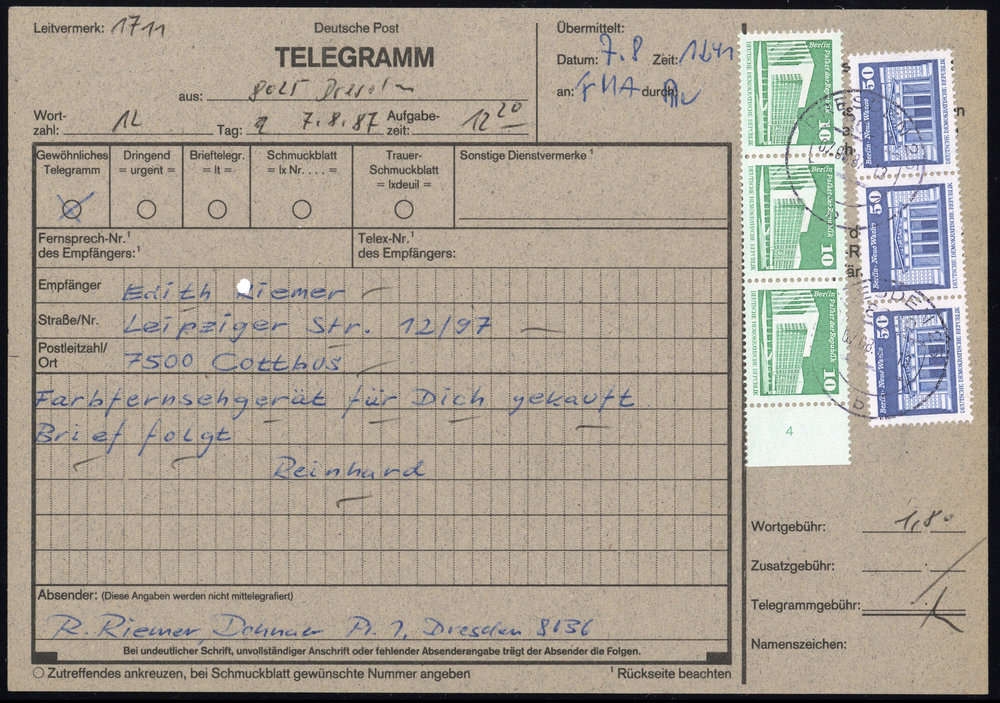 Leitvermerk: 1711
Deutsche Post
TELEGRAMM
aus: 8025 Dresden
Wort-
zahl: 12 Tag: 7.8.87 Aufgabe-
zeit: 12 20
Übermittelt:
Datum: 7.8 Zeit: 1241
an: durch:
Gewöhnliches
Telegramm
Dringend
= urgent =
Brieftelegr.
= lt =
Schmuckblatt
= lx Nr. . . . =
Trauer-
Schmuckblatt
= lxdeuil =
Sonstige Dienstvermerke ¹
Fernsprech-Nr.¹
des Empfängers:
Telex-Nr.¹
des Empfängers:
Empfänger Edith Riemer
Straße/Nr. Leipziger Str. 12/97
Postleitzahl/
Ort 7500 Cottbus
Farbfernsehgerät für Dich gekauft
Brief folgt
Reinhard
Absender: (Diese Angaben werden nicht mittelegrafiert)
R. Riemer, Dohnaer Pl. 1, Dresden 8036
Bei undeutlicher Schrift, unvollständiger Anschrift oder fehlender Absenderangabe trägt der Absender die Folgen.
○ Zutreffendes ankreuzen, bei Schmuckblatt gewünschte Nummer angeben
¹ Rückseite beachten
Berlin Palast der Republik
DEUTSCHE DEMOKRATISCHE REPUBLIK
10
Berlin Palast der Republik
DEUTSCHE DEMOKRATISCHE REPUBLIK
10
Berlin Palast der Republik
DEUTSCHE DEMOKRATISCHE REPUBLIK
10
4
50
Berlin · Neue Wache
DEUTSCHE DEMOKRATISCHE REPUBLIK
50
Berlin · Neue Wache
DEUTSCHE DEMOKRATISCHE REPUBLIK
50
Berlin · Neue Wache
DEUTSCHE DEMOKRATISCHE REPUBLIK
Wortgebühr: 1,80
Zusatzgebühr:
Telegrammgebühr:
Namenszeichen: